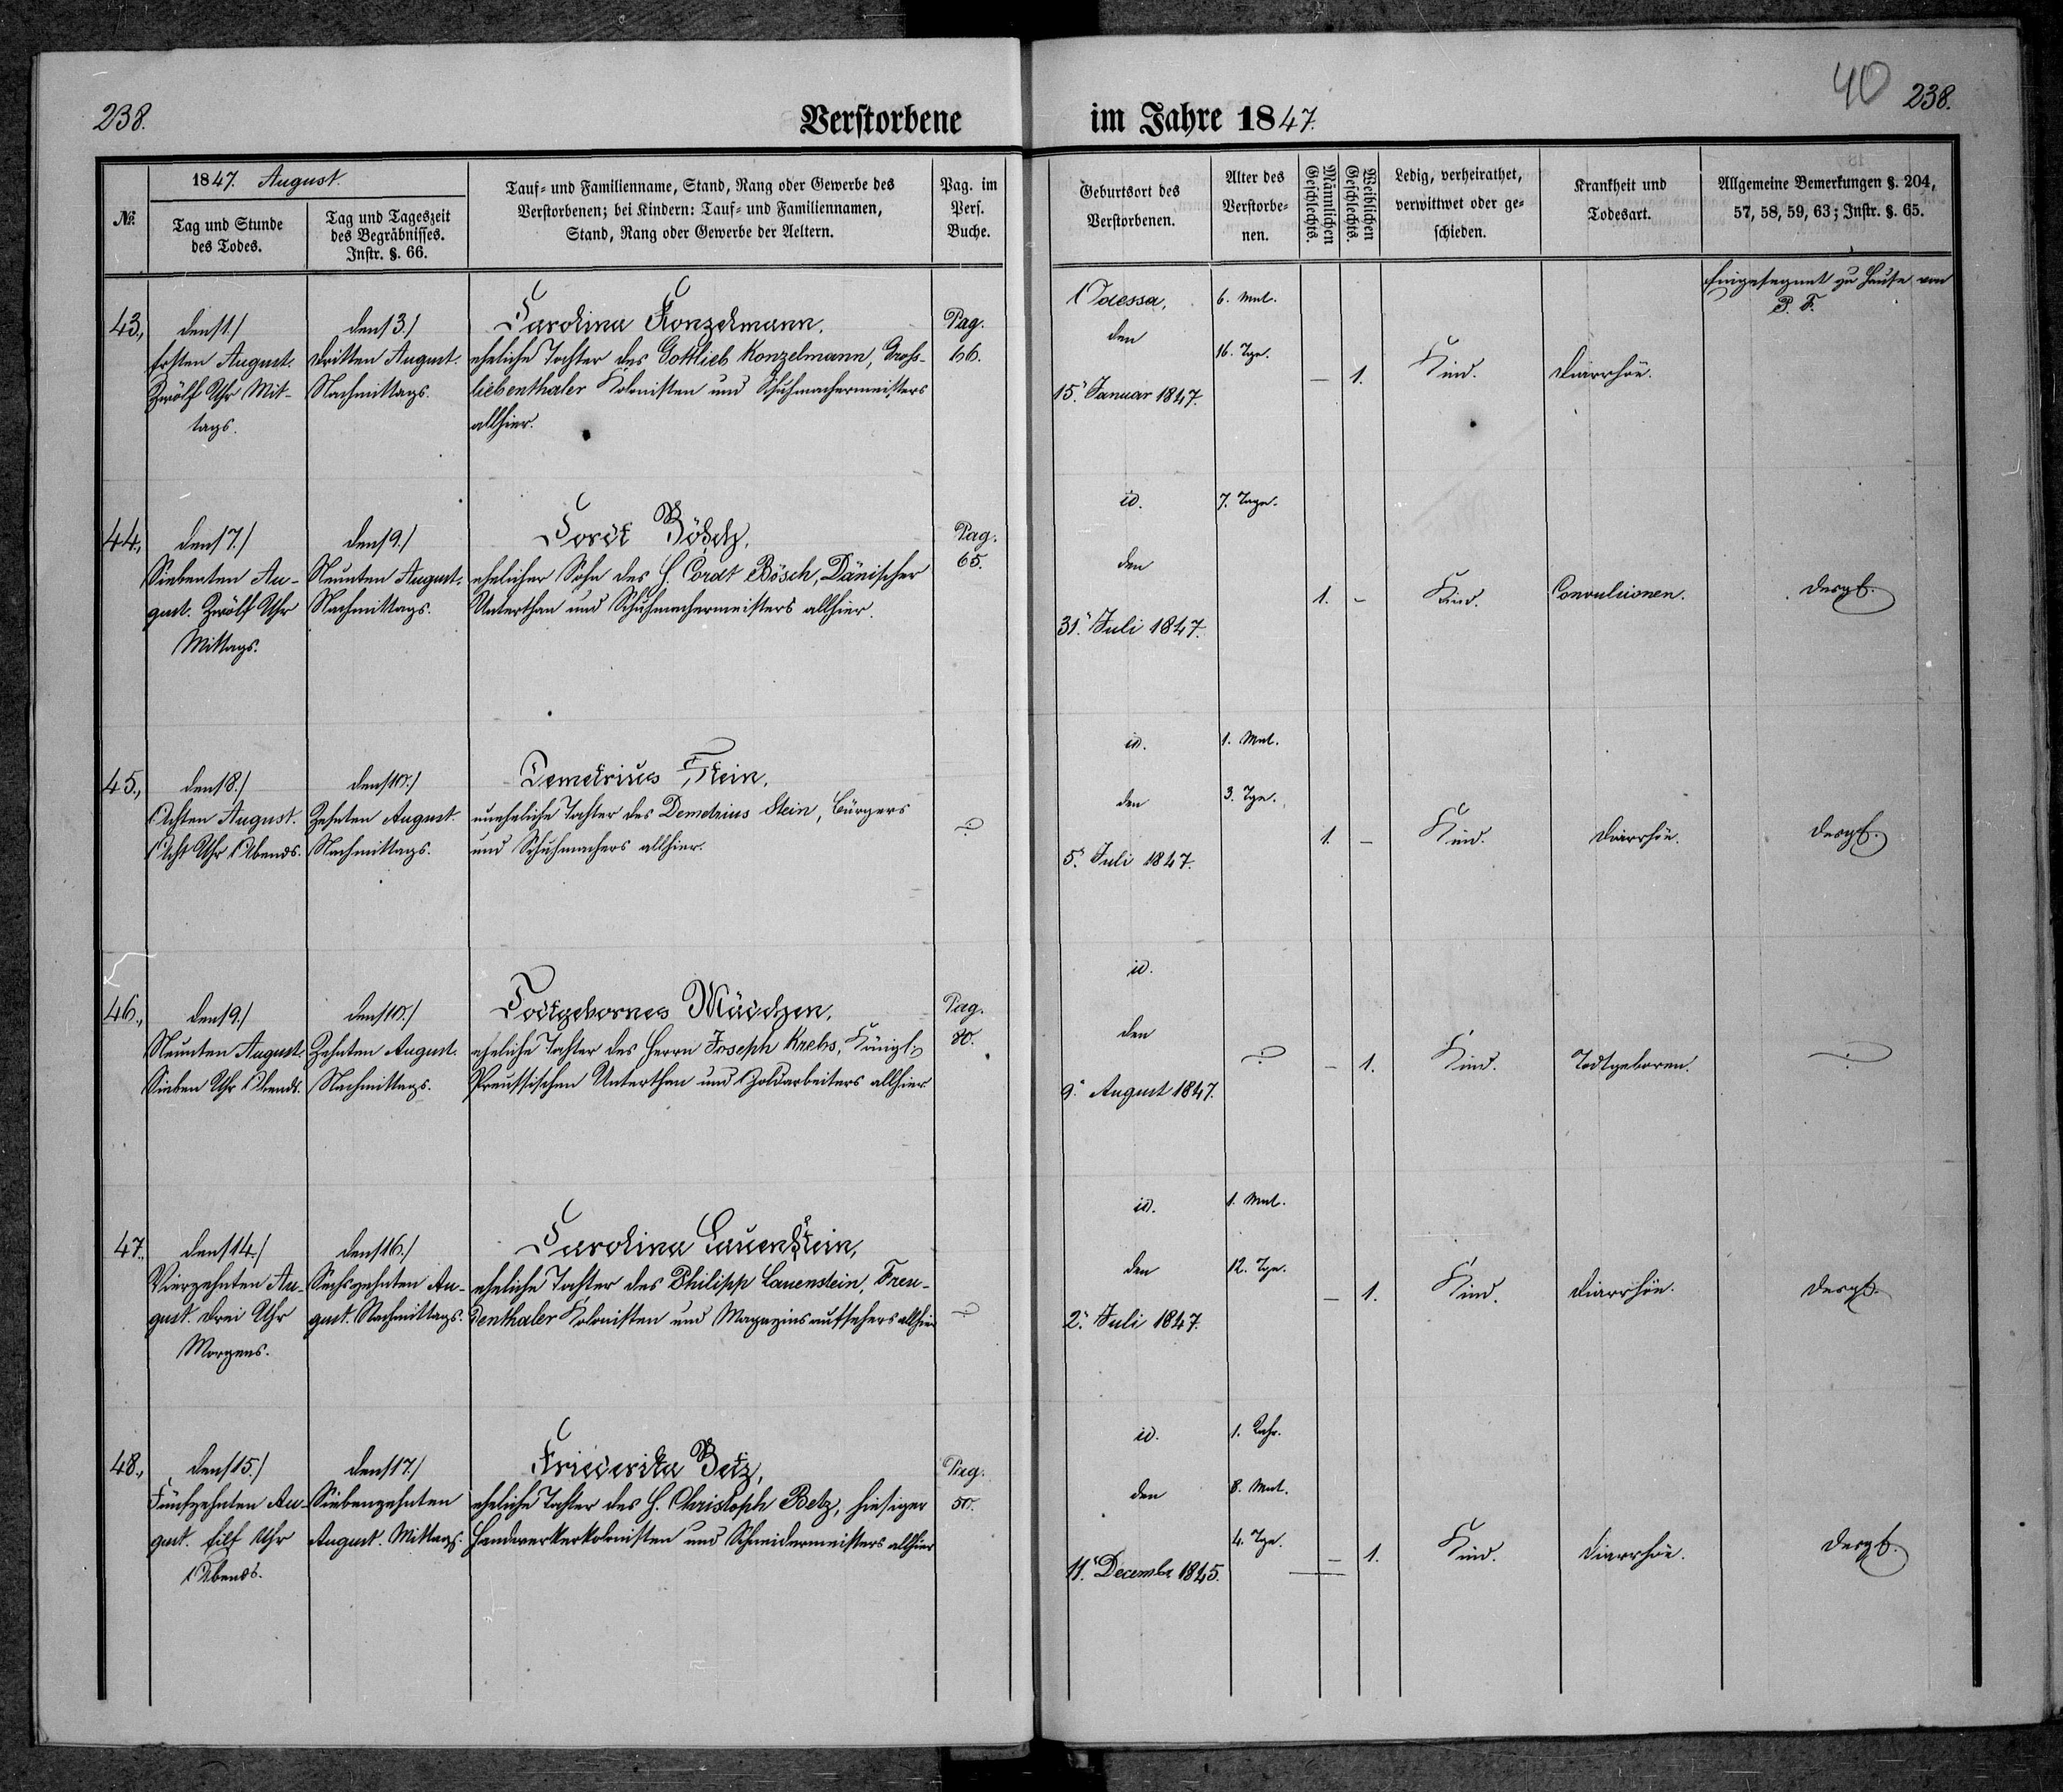 238.
Verstorbene
im Jahre 1847.
40
238.
№.
1847. August.
Tag und Stunde
des Todes.
Tag und Tageszeit
des Begräbnisses.
Instr. §. 66.
Tauf- und Familienname, Stand, Rang oder Gewerbe des
Verstorbenen; bei Kindern: Tauf- und Familiennamen,
Stand, Rang oder Gewerbe der Aeltern.
Pag. im
Pers.
Buche.
Geburtsort des
Verstorbenen.
Alter des
Verstorbe-
nen.
Männlichen
Geschlechts.
Weiblichen
Geschlechts.
Ledig, verheirathet,
verwittwet oder ge-
schieden.
Krankheit und
Todesart.
Allgemeine Bemerkungen §. 204,
57, 58, 59, 63; Instr. §. 65.
43.,
den 1./
Ersten August.
Zwölf Uhr Mit-
tags.
den 3./
Dritten August.
Nachmittags.
Carolina Konzelmann.
eheliche Tochter des Gottlieb Konzelmann, Gross-
liebenthaler Kolonisten und Schuhmachermeisters
allhier.
Pag.
66.
Odessa,
den
15. Januar 1847.
6. Mnt.
16. Tge.
— 1.
Kind.
Diarrhöe.
Eingesegnet zu Hause von
P. F.
44.,
den 7./
Siebenten Au-
gust. Zwölf Uhr
Mittags.
den 9./
Neunten August.
Nachmittags.
Cordt Bösch,
ehelicher Sohn des H. Cordt Bösch, Dänischer
Unterthan und Schuhmachermeisters allhier.
Pag.
65.
id.
den
31. Juli 1847.
7. Tage.
1. -
Kind.
Convulsionen.
desgl.
45.,
den 8./
Achten August.
Acht Uhr Abends.
den 10./
Zehnten August.
Nachmittags.
Demetrius Stein,
uneheliche Tochter des Demetrius Stein, Bürgers
und Schuhmachers allhier.
id.
den
5. Juli 1847.
1. Mnt.
3. Tge.
1. -
Kind.
Diarrhöe.
desgl.
46.,
den 9./
Neunten August.
Sieben Uhr Abends.
den 10./
Zehnten August.
Nachmittags.
Todtgebornes Mädchen,
eheliche Tochter des Herrn Joseph Krebs, Königl.
Preussischen Unterthan und Goldarbeiters allhier
Pag.
80.
id.
den
9. August 1847.
- 1.
Kind.
Todtgeboren.
47.,
den 14./
Vierzehnten Au-
gust. Drei Uhr
Morgens.
den 16./
Sechszehnten Au-
gust. Nachmittags.
Carolina Lauenstein,
eheliche Tochter des Philipp Lauenstein, Freu-
denthaler Kolonisten und Magazinsaufsehers allhier
id.
den
2. Juli 1847.
1. Mnt.
12. Tge.
— 1.
Kind.
Diarrhöe.
desgl.
48.,
den 15./
Fünfzehnten Au-
gust. Eilf Uhr
Abends.
den 17./
Siebenzehnten
August. Mittags.
Friederika Betz,
eheliche Tochter des H. Christoph Betz, hiesiger
Handwerkerkolonisten und Schneidermeisters allhier
Pag.
50.
id.
den
11. Decembr 1845.
1. Jahr.
8. Mnt.
4. Tge.
— 1.
Kind.
Diarrhöe.
desgl.